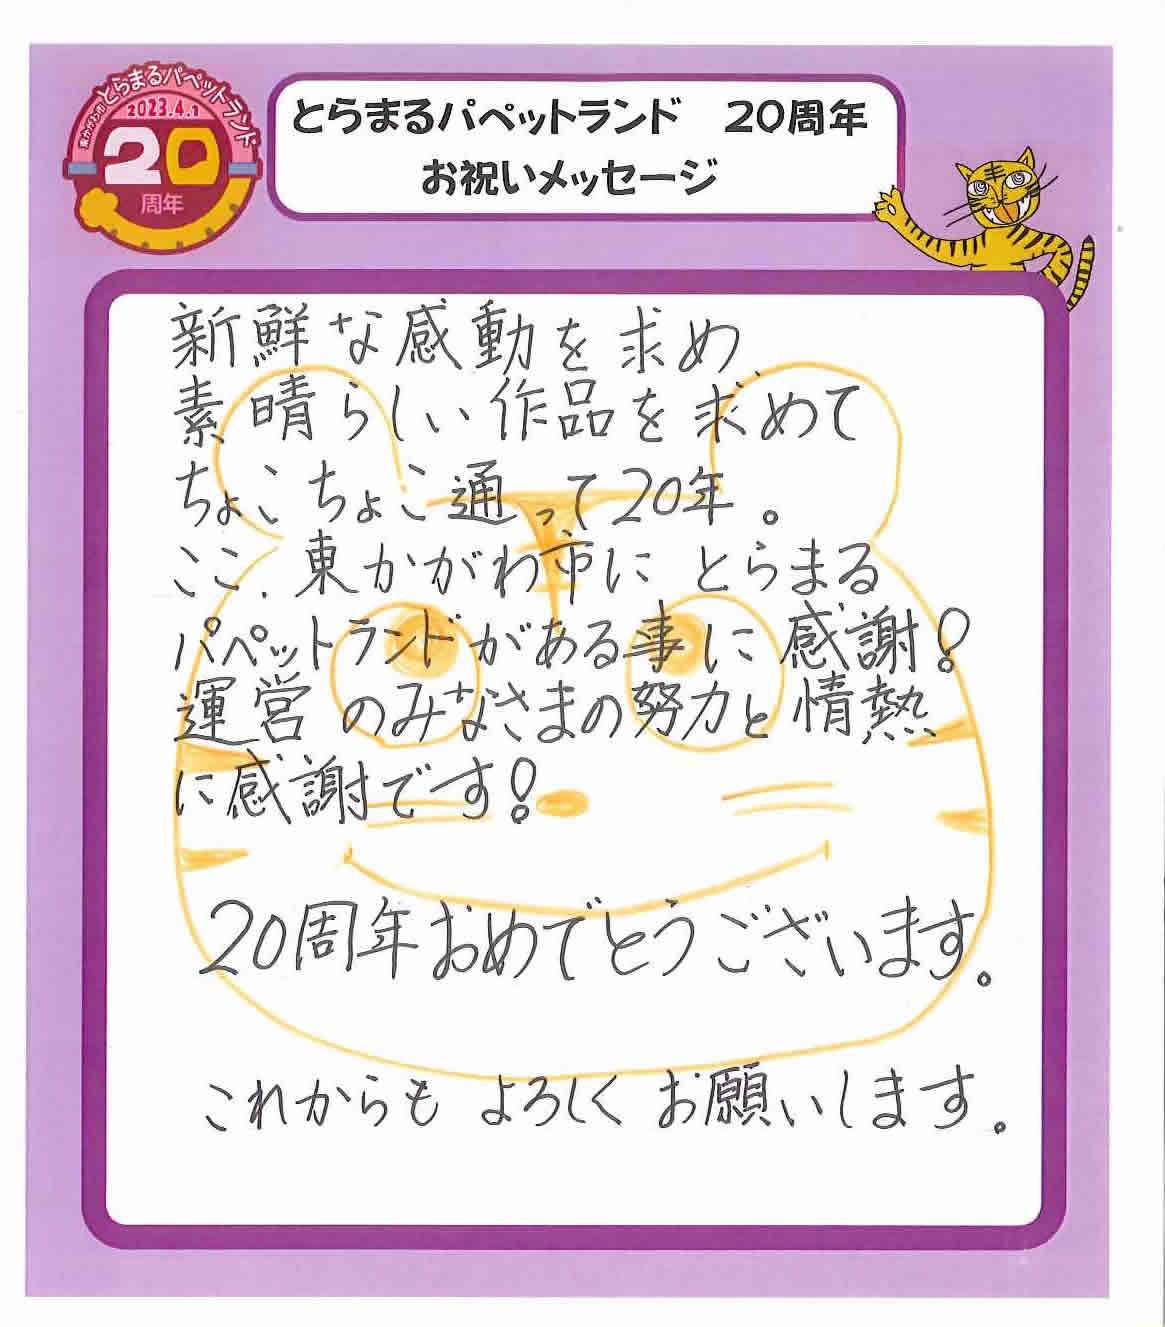 東かがわ市とらまるパペットランド
2023.4.1
20
周年
とらまるパペットランド 20周年
お祝いメッセージ
新鮮な感動を求め
素晴らしい作品を求めて
ちょこちょこ通って20年。
ここ、東かがわ市に とらまる
パペットランドがある事に感謝!
運営のみなさまの努力と情熱
に感謝です!
20周年おめでとうございます。
これからも よろしく お願いします。